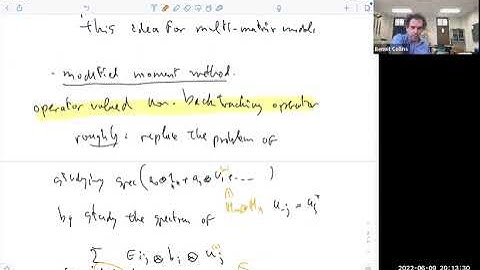 this idea for multi-matrix models
· modified moment method.
operator valued non-backtracking operator
roughly: replace the problem of
studying spec(a₀⊗1+a₁⊗u₁....)
by study the spectrum of u₋ⱼ = uⱼ*
Σ Eij ⊗ bj ⊗ uj
Benoit Collins
2022-06-09 20:13:30